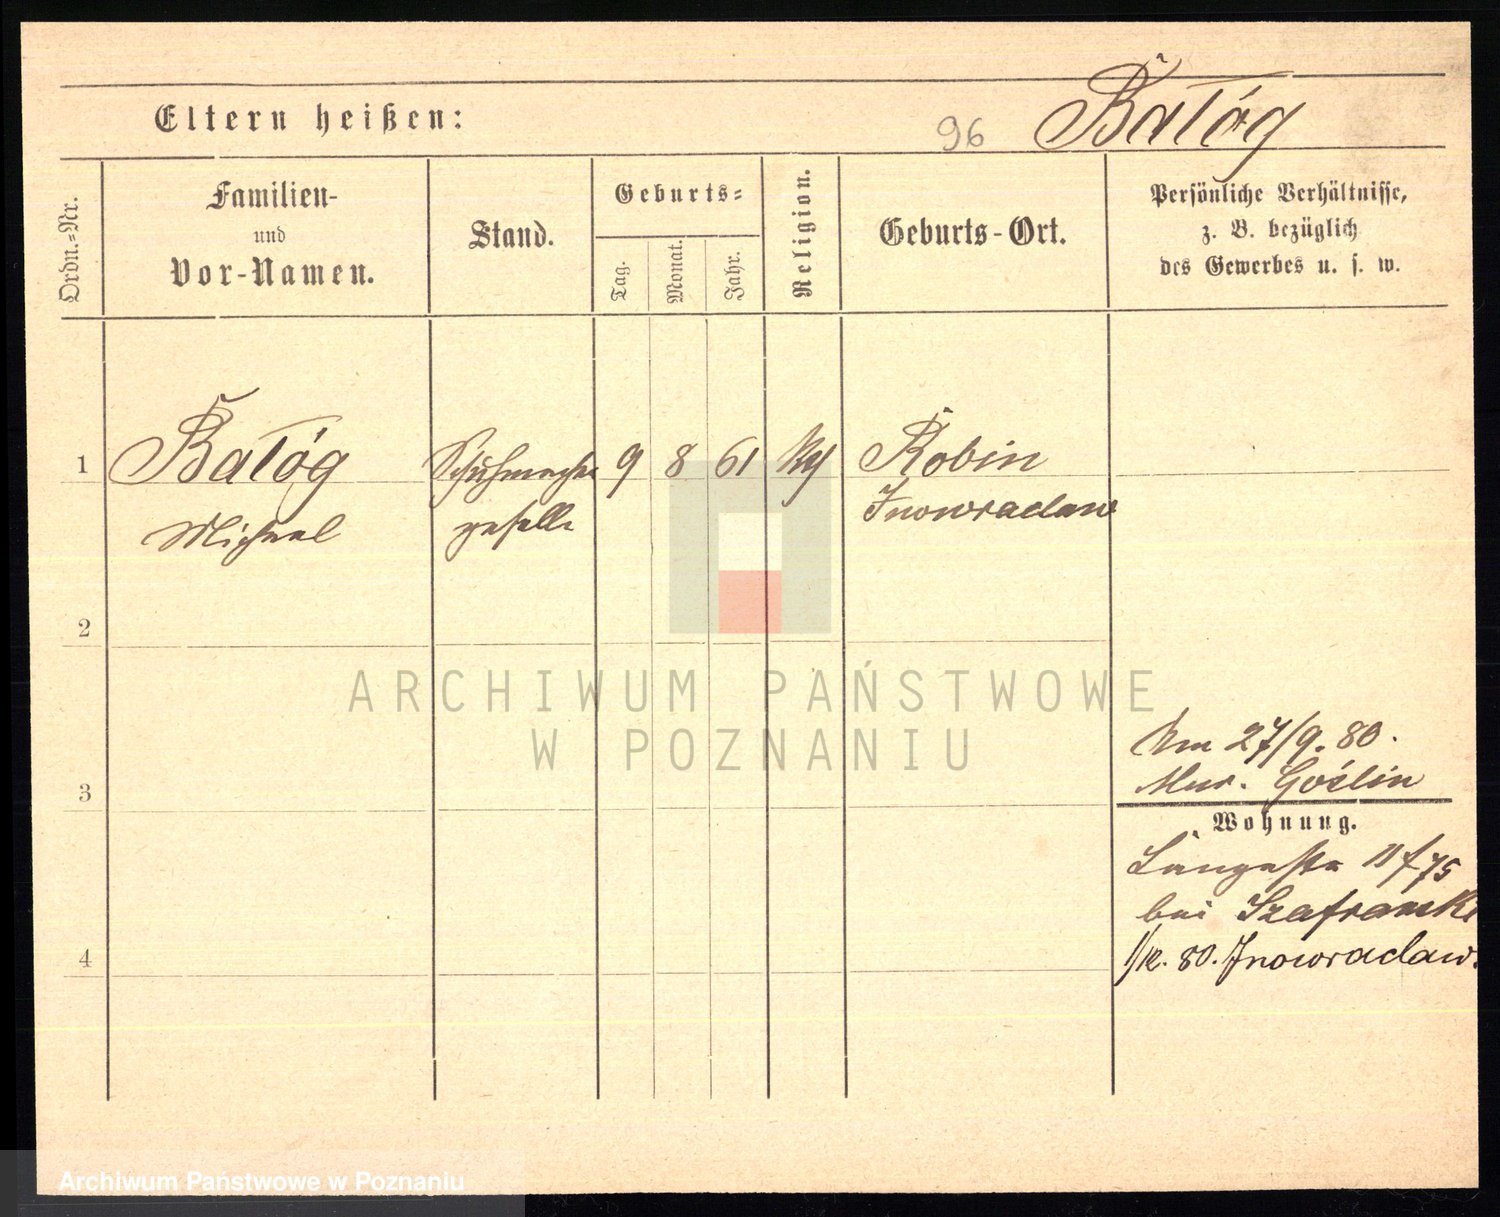 Eltern heißen:
96 Bałóg
Ordn.-Nr.
Familien-
und
Vor-Namen.
Stand.
Geburts-
Tag.
Monat.
Jahr.
Religion.
Geburts-Ort.
Persönliche Verhältnisse,
z. B. bezüglich
des Gewerbes u. s. w.
1 Bałóg Schuhmacher 9 8 61 Robin
Michael geselle Inowraclaw
2
3
4
ARCHIWUM PAŃSTWOWE
W POZNANIU
27/9. 80.
Mur. Goślin
Wohnung.
Langestr
bei Szafranski
80. Inowraclaw.
Archiwum Państwowe w Poznaniu